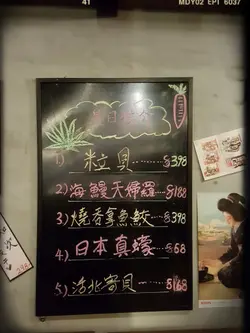 41 MDY02 EPT 6037
1) 粒貝 $398
2) 海鰻天婦羅 $188
3) 燒吞拿魚鮫 $398
4) 日本真蠔 $68
5) 活北寄貝 $168
298